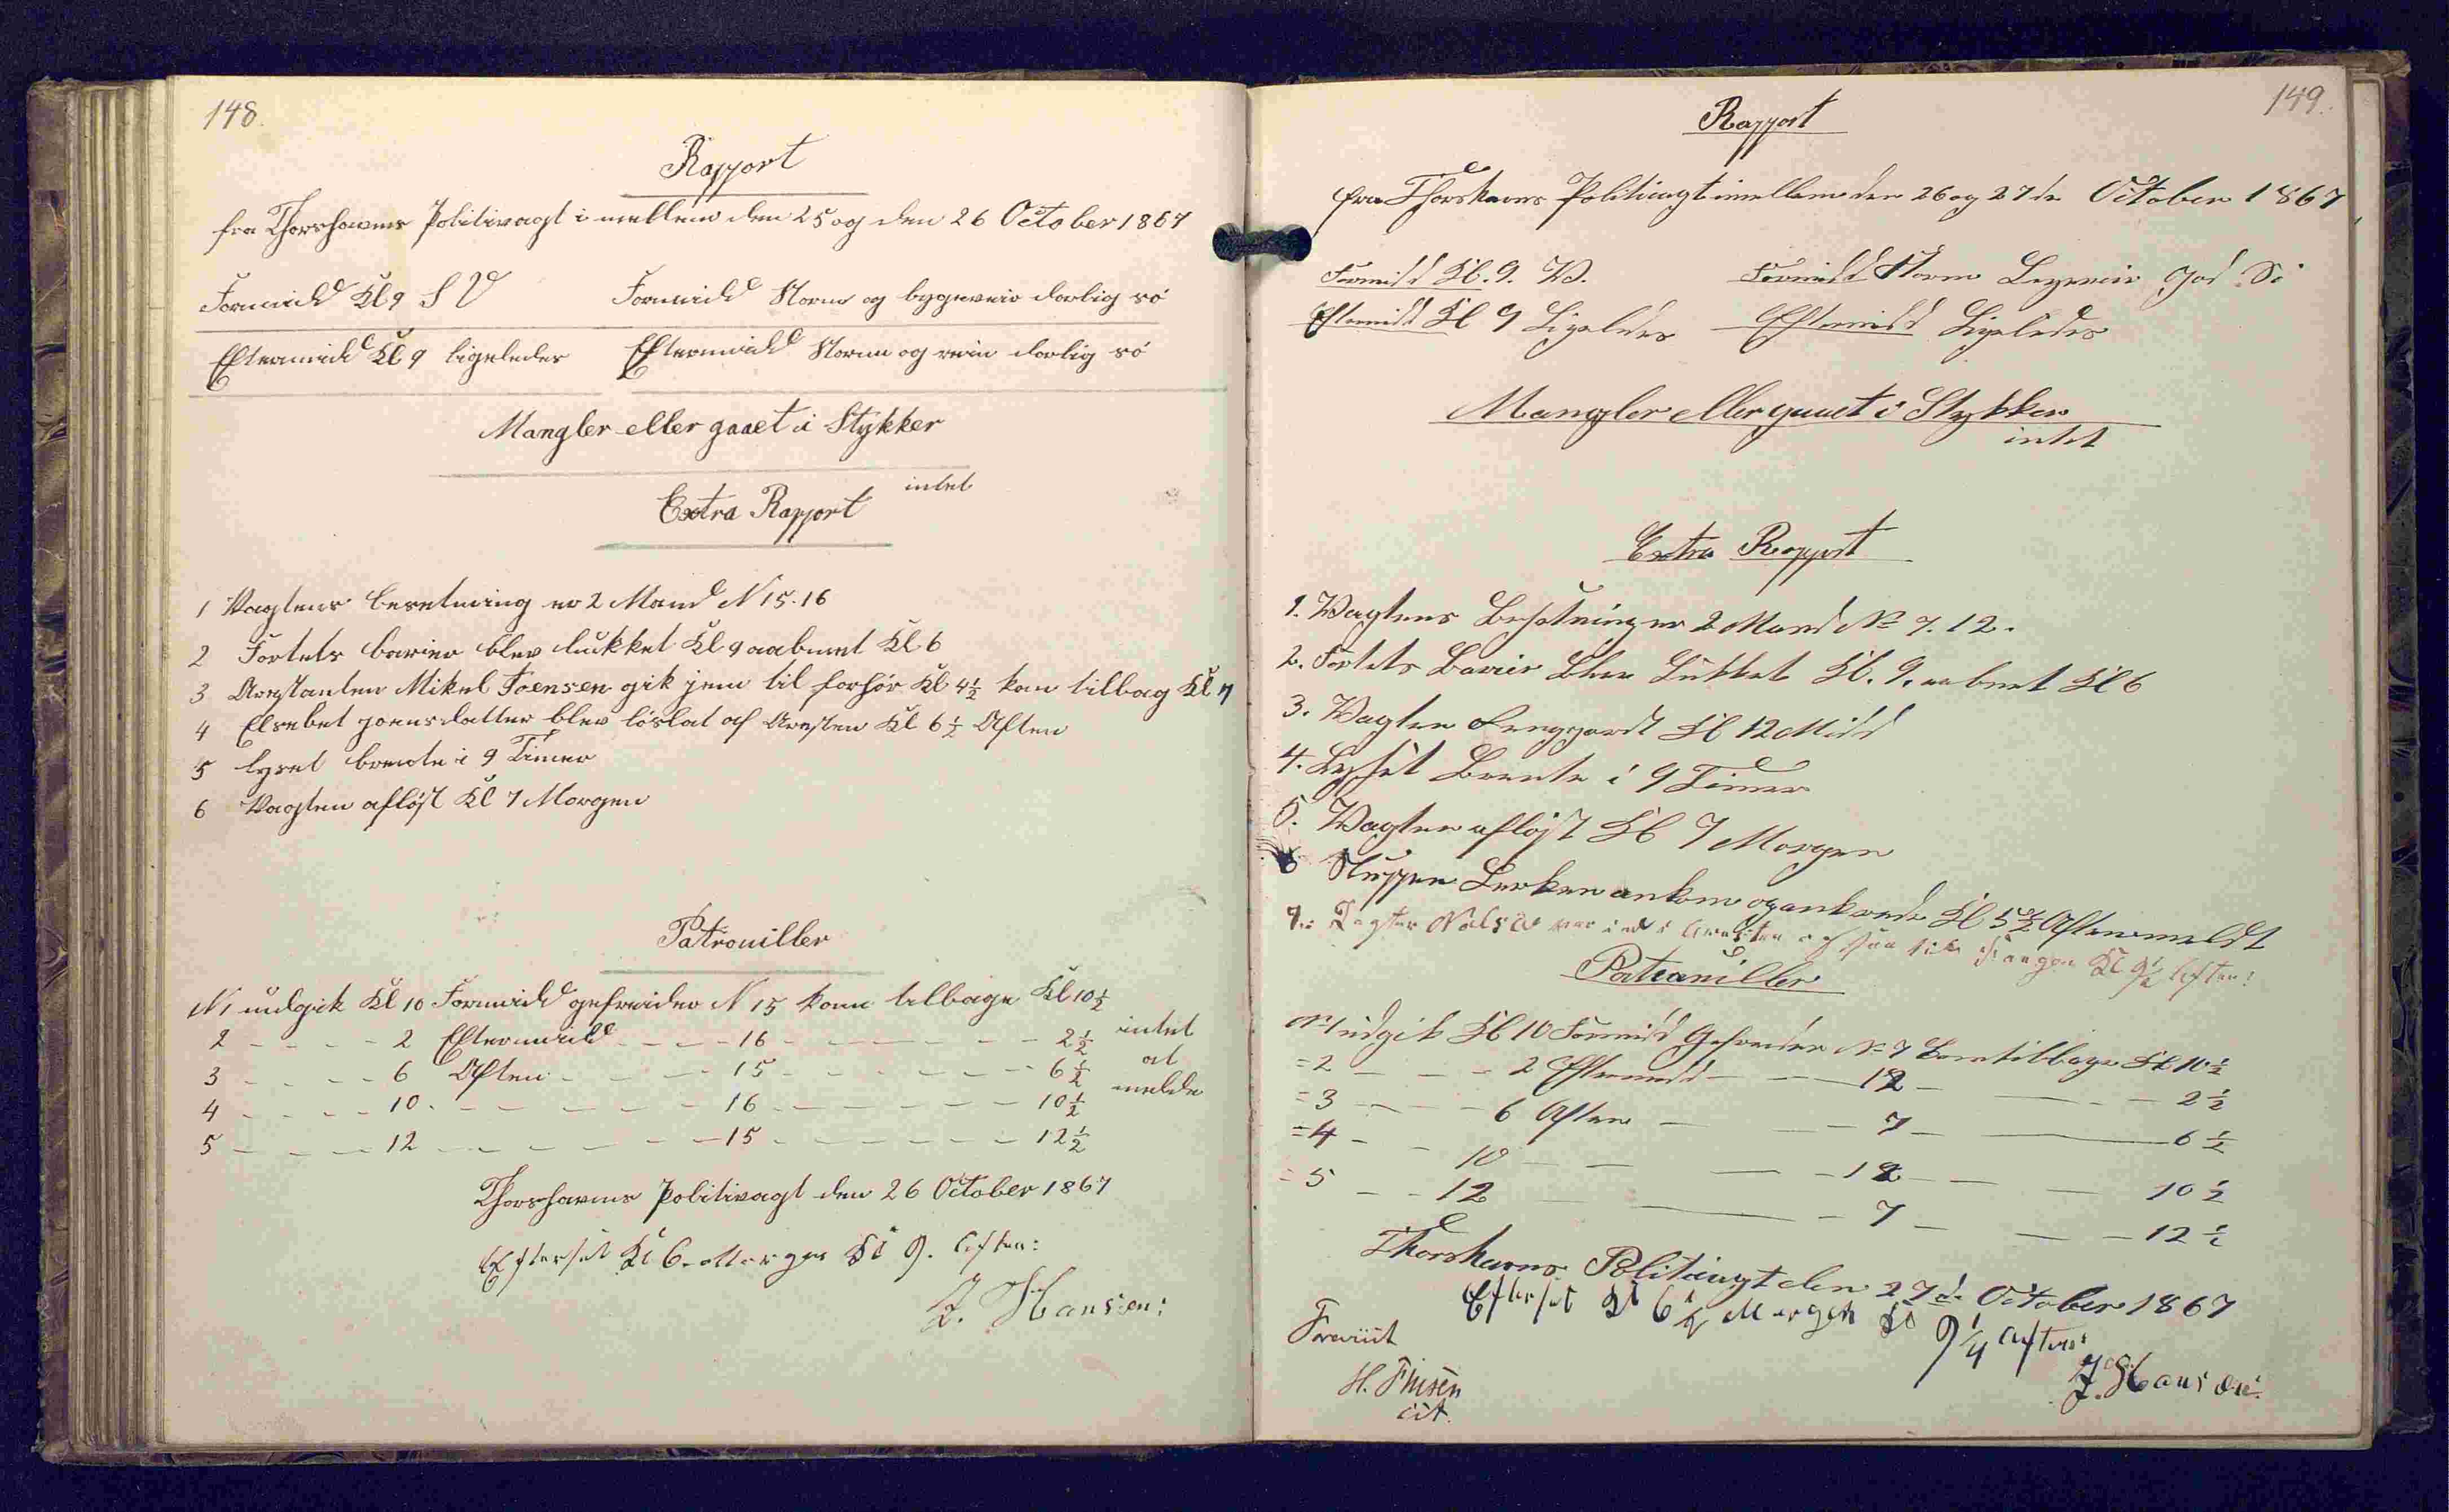 148.
Rapport
fra Thorshavns Politivagt i mellem den 25 og den 26 October 1867
Formidd Kl 9 S V Formidd Storm og bygeveir dorlig sö
Eftermidd Kl 9 ligeledes Eftermidd Storm og rein dorlig sö
Mangler eller gaaet i Stykker
intet
Extra Rapport
1 Vagtens besetning er 2 Mand N 15.16
2 Fortets barier blev lukket Kl 9 aabnet Kl 6
3 Arestanten Mikel Joensen gik jem til forhör Kl 4½ kom tilbag Kl 7
4 Elsebet joensdatter blev löslat af Aresten Kl 6½ Aften
5 lyset brente i 9 Timer
6 Vagten aflöst Kl 7 Morgen
Patrouiller
N 1 udgik Kl 10 Formidd gefreider N 15 kom tilbage Kl 10½ intet
2 - - - - 2 Eftermidd - - - 16 - - - - - - 2½ at
3 - - - - 6 Aften - - - 15 - - - - - - 6½ melde
4 - - - - 10 - - - - - - 16 - - - - - - 10½
5 - - - - 12 - - - - - - 15 - - - - - - 12½
Thorshavns Politivagt den 26 October 1867
Efterset Kl 6 Morgen Kl 9. Aften:
J. Hansen:
149.
Rapport
fra Thorshavns Politivagt imellem den 26 og 27de October 1867
Formidd Kl. 9. V. Formidd Storm Bygeveir God Sö
Eftermidd Kl 9 Ligeledes Eftermidd Ligeledes
Mangler eller gaaet i Stykker
intet
Extra Rapport
1. Vagtens Besetning er 2 Mand No 7. 12.
2. Fortets Barier Blev Lukket Kl. 9. aabnet Kl 6
3. Vagten Kl 12 Midd
4. Lyset Brente i 9 Timer
5. Vagten aflöst Kl 7 Morgen
6 Sluppen Lerken ankom og ankrede Kl 5½ Aften meldt
7.: Nolsö var ind i Aresten og saa til Fangen Kl 9½ Aften:
Patrouiller
No 1 udgik Kl 10 Formidd Gefreider No 7 kom tilbage Kl 10½
=2 - - - 2 Eftermidd - - 12 - - - 2½
=3 - - - 6 Aften - - 7 - - 6½
=4 - - 10 - - - - 12 - - - 10½
=5 - - 12 - - - 7 - - - 12½
Thorshavns Politivagt den 27de October 1867
Efterset Kl 6½ Morgen Kl 9¼ Aften:
J. Hansen:
Foreviist
H. Finsen
cst.